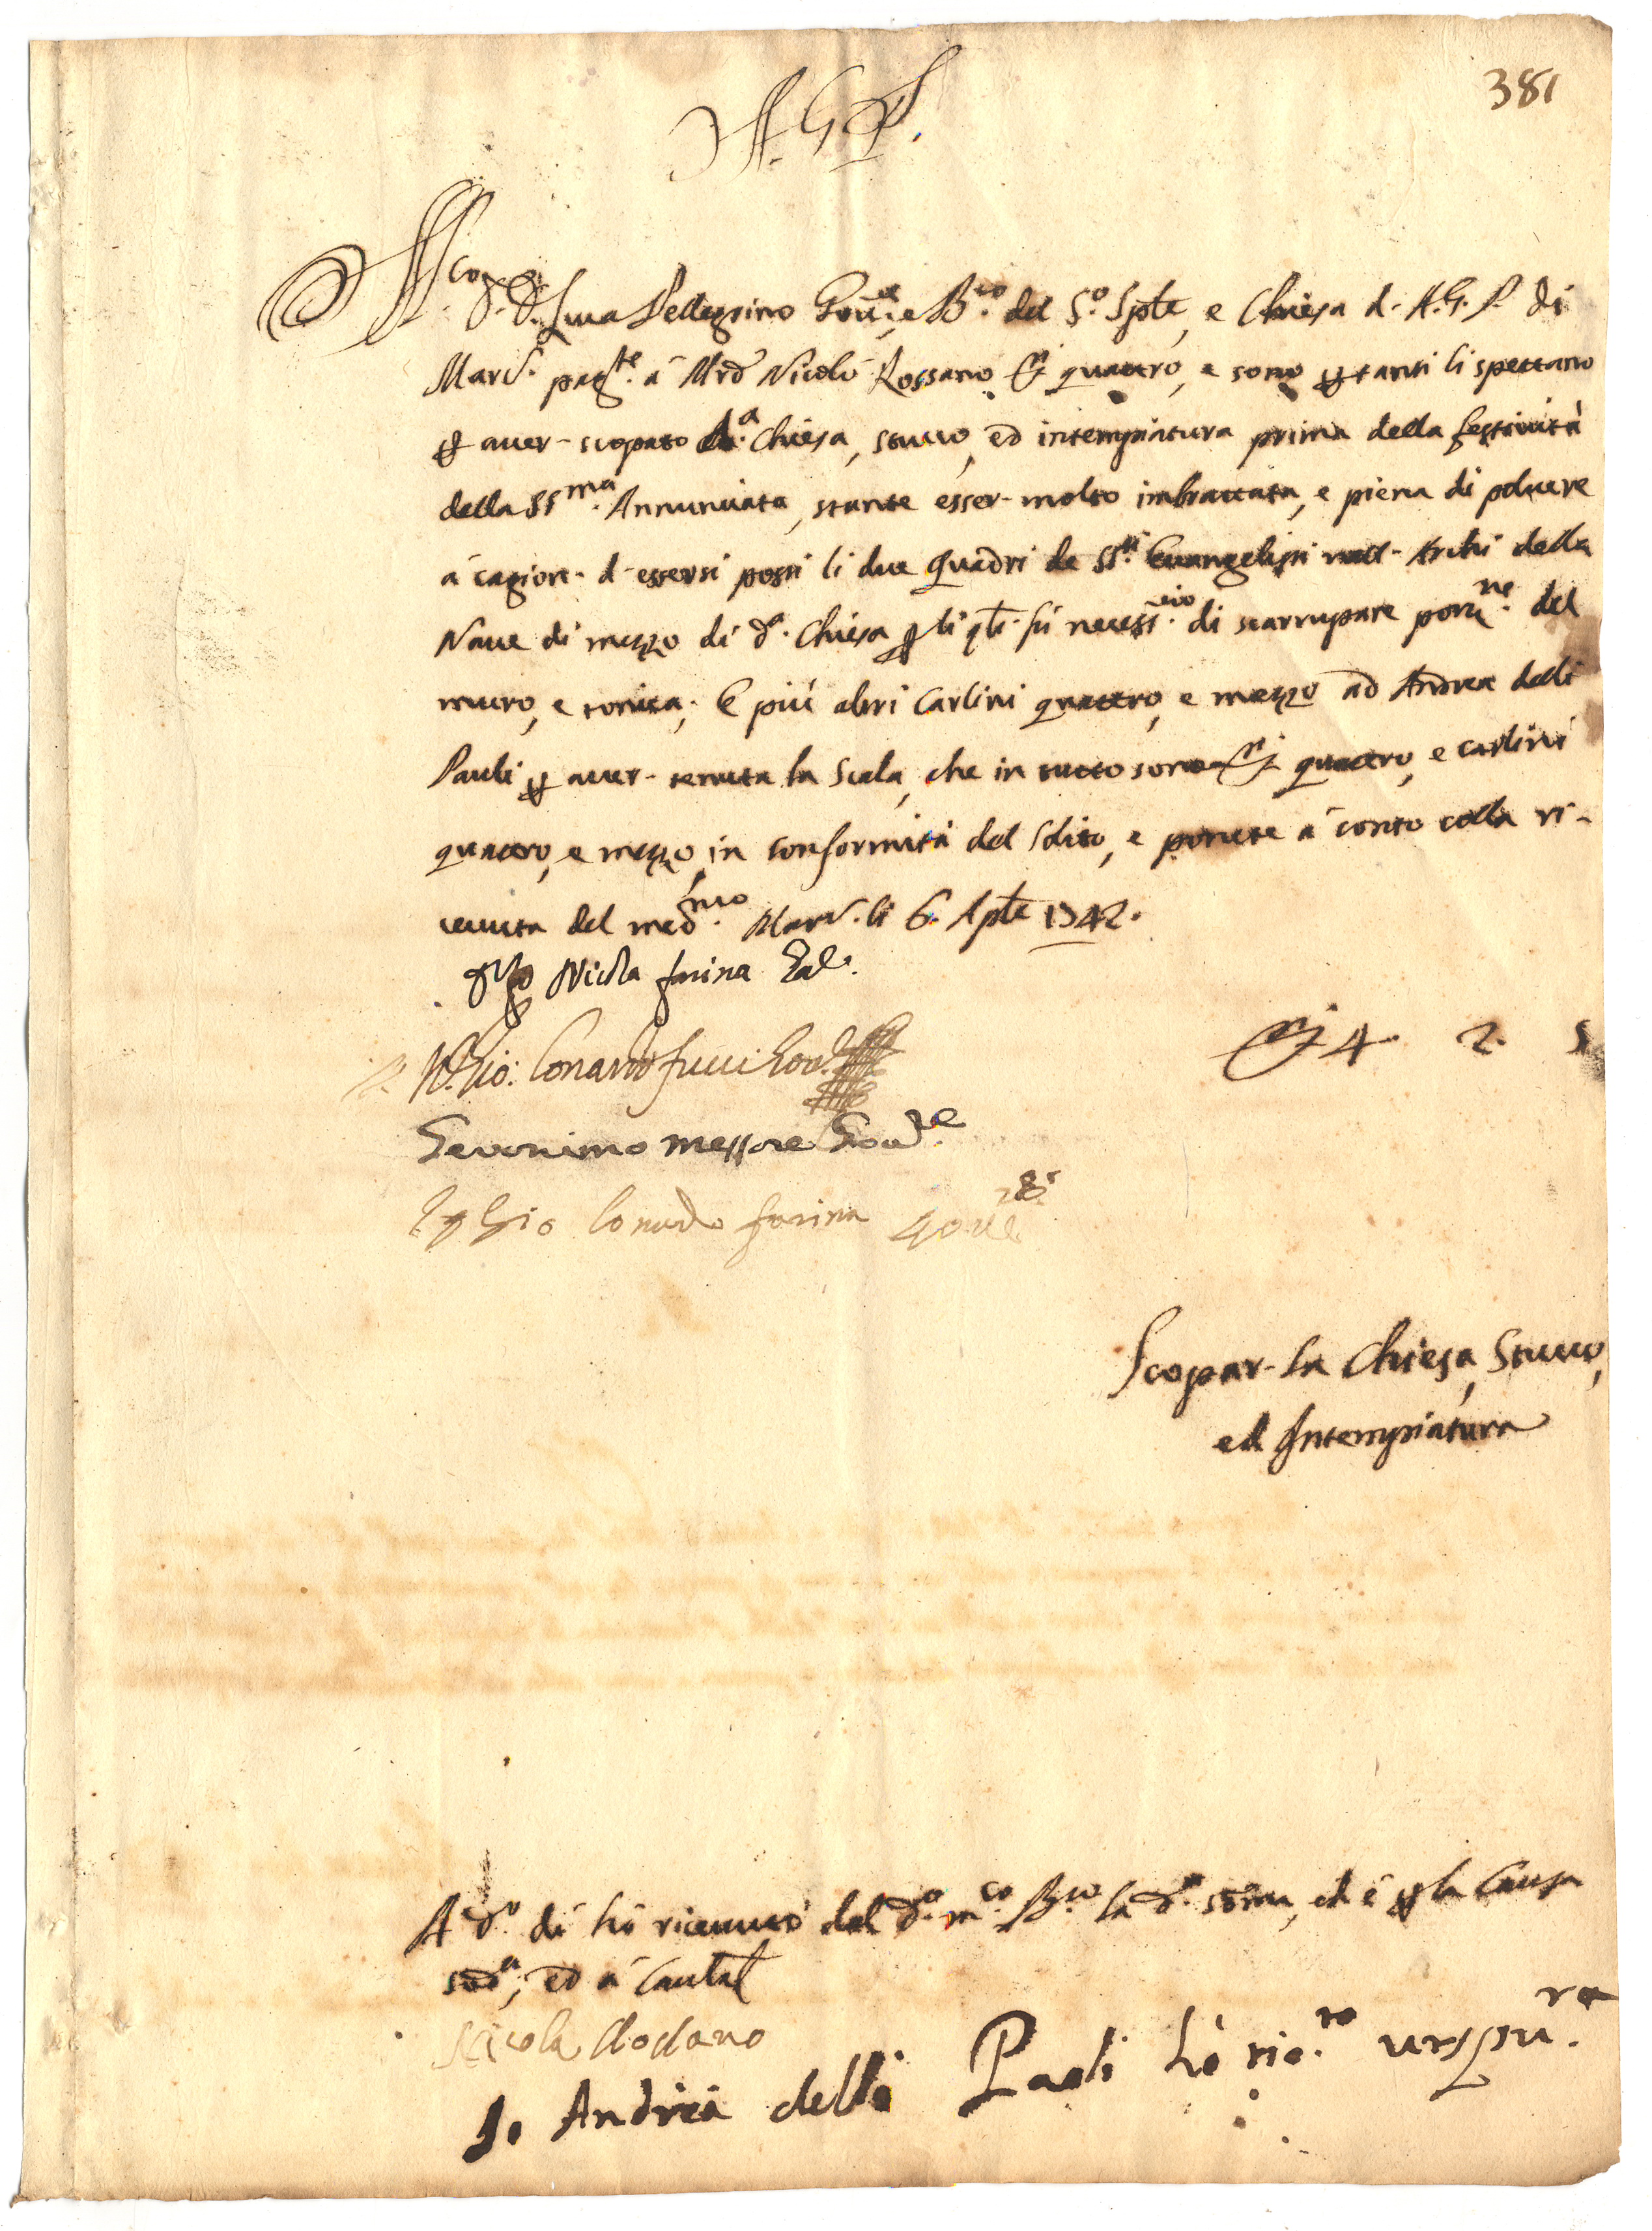 381
A. G. P.
M.co S.r D. Luca Pellegrino Gov.re e B.co del S.o Sple, e Chiesa d. A. G. P. di
Marc.e pag.te á Mrõ Nicolò Rossano d.ti quattro, e sono p tanti li spettano
p aver scopato d.a Chiesa, stucco, ed intempiatura prima della festività
della SS.ma Annunciata, stante esser molto imbrattata, e piena di polvere
á cagion d'essersi posti li due Quadri de SS.ti Evangelisti nell' Archi della
Nave di mezzo di d.a Chiesa p li q̃li fù necess.rio di scarrupare porz.ne del
muro, e tonica; E più altri Carlini quattro, e mezzo ad Andrea delli
Pauli p aver tenuta la Scala, che in tutto sono d.ti quattro, e carlini
quattro, e mezzo, in conformità del Solito, e ponete á conto colla ri-
cevuta del med.mo Marc.e li 6. Aple 1742.
Nicola farina
Gio: Lonardo fucci Gov.
Geronimo Messore Gov.re
Io Gio Lonardo farina Gov.re
d.ti 4 2. 5
Scopar la Chiesa, Stucco,
ed Intempiatura
A d.o dì hò ricevuto dal d.o m.co B.co la d.a som̃a, ed é p la Causa
sud.a, ed á Cautel
Nicola Rossano
Io Andrea delli Paoli hò ric.to ut supra